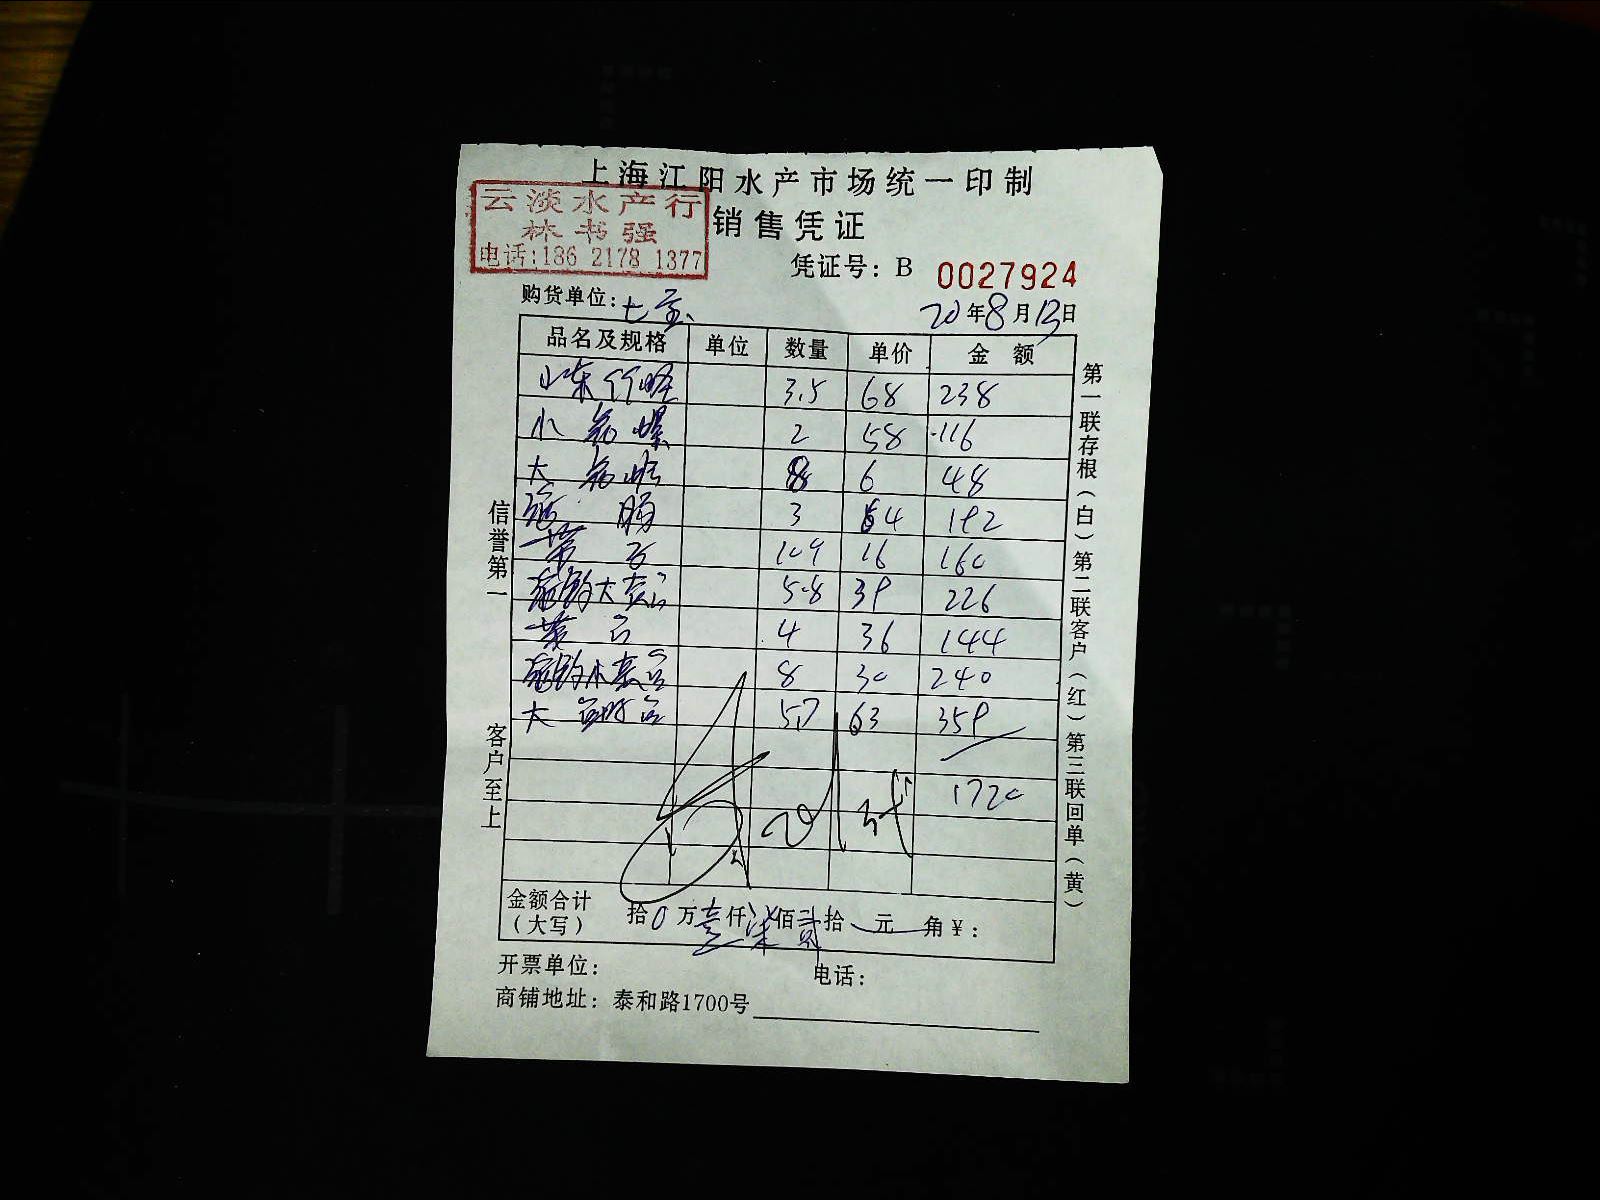 上海江阳水产市场统一印制
云淡水产行
林书强
电话:186 2178 1377
销售凭证
凭证号: B 0027924
购货单位: 七宝
20年8月13日
品名及规格 单位 数量 单价 金额
山东竹蛏 3.5 68 238
小 螺 2 58 116
大 8 6 48
肠 3 64 192
109 16 160
大 5.8 39 226
4 36 144
小 8 30 240
大 5.7 63 359
1720
金额合计
(大写)
拾0万壹仟柒佰贰拾 元 角¥:
开票单位: 电话:
商铺地址: 泰和路1700号
信誉第一 客户至上
第一联存根(白)第二联客户(红)第三联回单(黄)